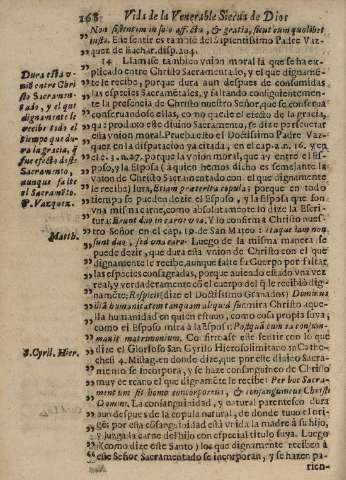 168 Vida de la Venerable Sierva de Dios
Non sistentim in suo affectu, & gratia, sicut cum quolibet
iusto. Este sentir es tambien del Sapientissimo Padre Vaz-
quez de Euchar. disp. 204.
14 Llamase tambien vnion moral la que se ha ex-
plicado entre Christo Sacramentado, y el que digname-
te le recibe, porque dura aun despues de consumidas
las especies Sacramētales, y faltando consiguientemen-
te la presencia de Christo nuestro Señor, que se conserva
conservandose ellas, como quede el efecto de la gracia,
que produce este divino Sacramento, se dize perseverar
esta vnion moral. Prueba esto el Doctissimo Padre Vaz-
quez en la disputacion ya citada, en el cap. 2. n. 16. y en
el c. 3. n. 27. porque la vnion moral, que ay entre el Es-
poso, y la Esposa (à quien hemos dicho es semejante la
vnion de Christo Sacramentado con el que dignamente
le recibe) dura, Etiam præterita copula: porque en todo
tiempo se pueden dezir el Esposo, y la Esposa que son
vna misma carne, como absolutamente lo dize la Escri-
tura: Erunt duo in carne vna. Y lo confirma Christo nues-
tro Señor en el cap. 19. de San Mateo: Itaque iam non
sunt duo, sed vna caro. Luego de la misma manera se
puede dezir, que dura esta vnion de Christo con el que
dignamente le recibe, aunque falte su Cuerpo por faltar
las especies consagradas, porque auiendo estado vna vez
real, y verdaderamente cō el cuerpo del q̄ le recibiò dig-
namēte; Respicit (dize el Doctissimo Granados) Dominus
illā humanitatem tanquam aliquid sui: mira Christo aque-
lla humanidad en quien estuvo, como cosa propia suya,
como el Esposo mira à la Esposa: Postquā cum ea consum-
mauit matrimonium. Confirmase este sentir con lo que
dize el Glorioso San Cyrilo Hierosolimitano in Cathe-
chesi 4. Mistag. en donde dize, que por este divino Sacra-
mento se incorpora, y se haze consanguineo de Christo
muy cercano el que dignamēte le recibe: Per hoc Sacra-
mentum fit homo concorporeus, & consanguineus Christi
Domini. La consanguinidad, y natural parentesco dura
aun despues de la copula natural, de donde tuuo el ori-
gen: por esta cōsanguinidad està vnida la madre à su hijo,
y juzga la carne del hijo con especial titulo suya. Luego
si (como dize este Santo) los que dignamente reciben à
este Señor Sacramentado se incorporan, y se hazen pa-
rien-
Dura esta v-
niō entre Chri-
sto Sacramen-
tado, y el que
dignamente le
recibe todo el
tiempo que du-
ra la gracia, q̄
fue efecto deste
Sacramento,
aunque falte
el Sacramēto.
P. Vazquez.
Matth.
S. Cyril. Hier.